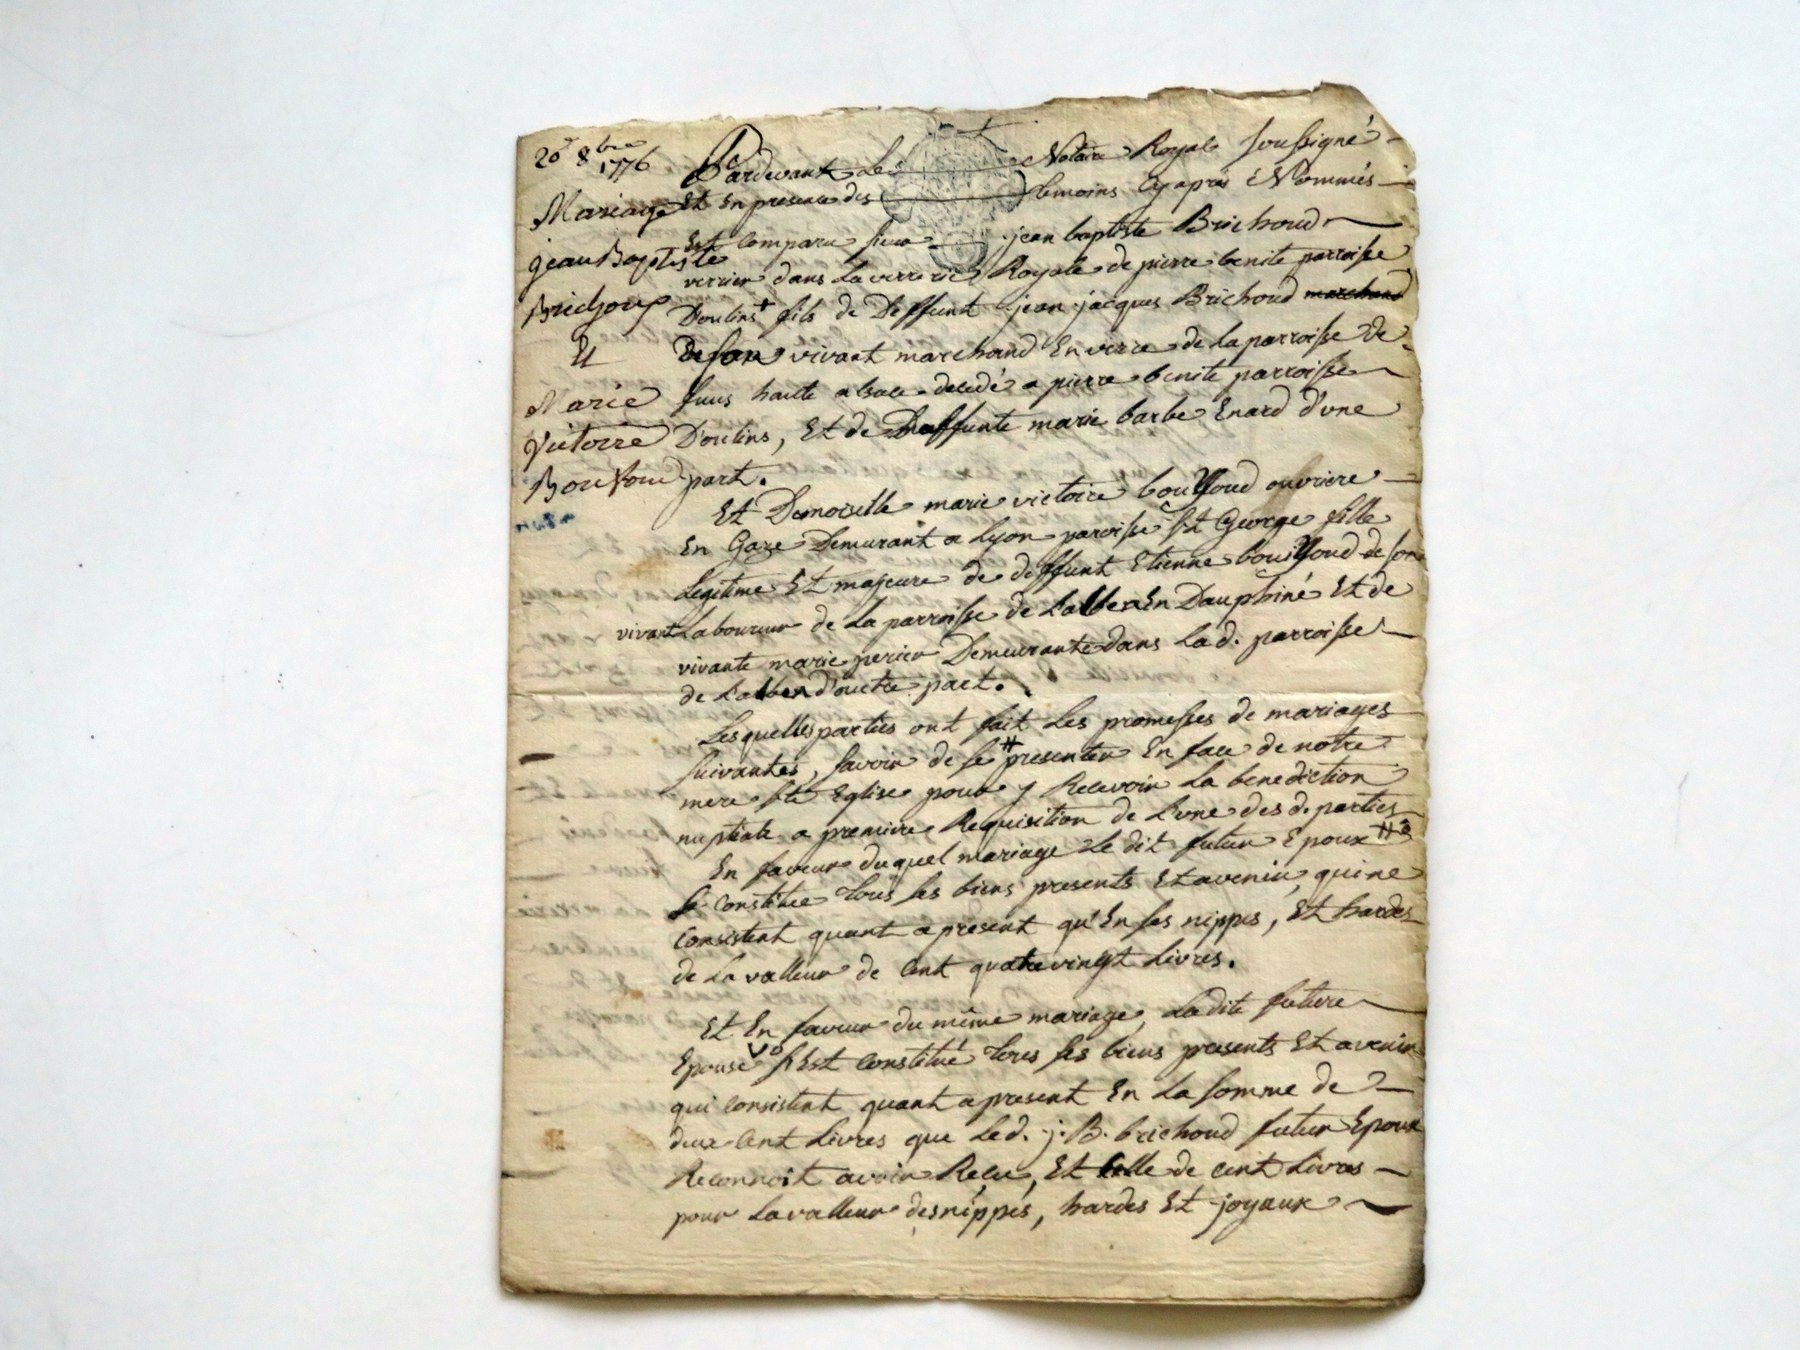 20 8bre 1776
Mariage
jean Baptiste
Brichoux
Et
Marie
Victoire
Bouvoud
Pardevant Le Notaire Royal soussigné
Et En presence des temoins Cy après Nommés
Est comparu sieur jean baptiste Brichoud
verrier dans La verrerie Royale de pierre benite parroisse
D'oulins + fils de Deffunt jean jacques Brichoud marchand
De son vivant marchand En verre de La parroisse de
haute alsace decedé a pierre benite parroisse
D'oulins, Et de Deffunte marie barbe Enard d'une
part.
Et Demoiselle marie victoire bouYoud ouvriere
En Gaze Demurant a Lyon paroisse St George fille
Legitime Et majeure de deffunt Etienne bouYoud de son
vivant Laboureur de La parroisse de Lalben En Dauphiné Et de
vivante marie perier Demeurante dans La d. parroisse
de Lalben d'autre part.
Lesquelles parties ont fait Les promesses de mariages
suivantes, savoir de se # presenter En face de notre
mere Ste Eglise pour y Recevoir La benediction
nuptiale a premiere Requisition de L'une des d. parties
En faveur duquel mariage Le dit futur Epoux #
se constitue tous ses biens presents Et avenir, qui ne
consistent quant a present qu'En ses nippes, Et hardes
de La valleur de Cent quatre vingt Livres.
Et En faveur du même mariage, Ladite future
Epouse s'Est constitué tous ses biens presents Et avenir
qui consistent quant a present En La somme de
deux Cent Livres que Led. j. B. brichoud futur Epoux
Reconnoit avoir Recu, Et Celle de cent Livres
pour La valleur des nippes, hardes Et joyaux